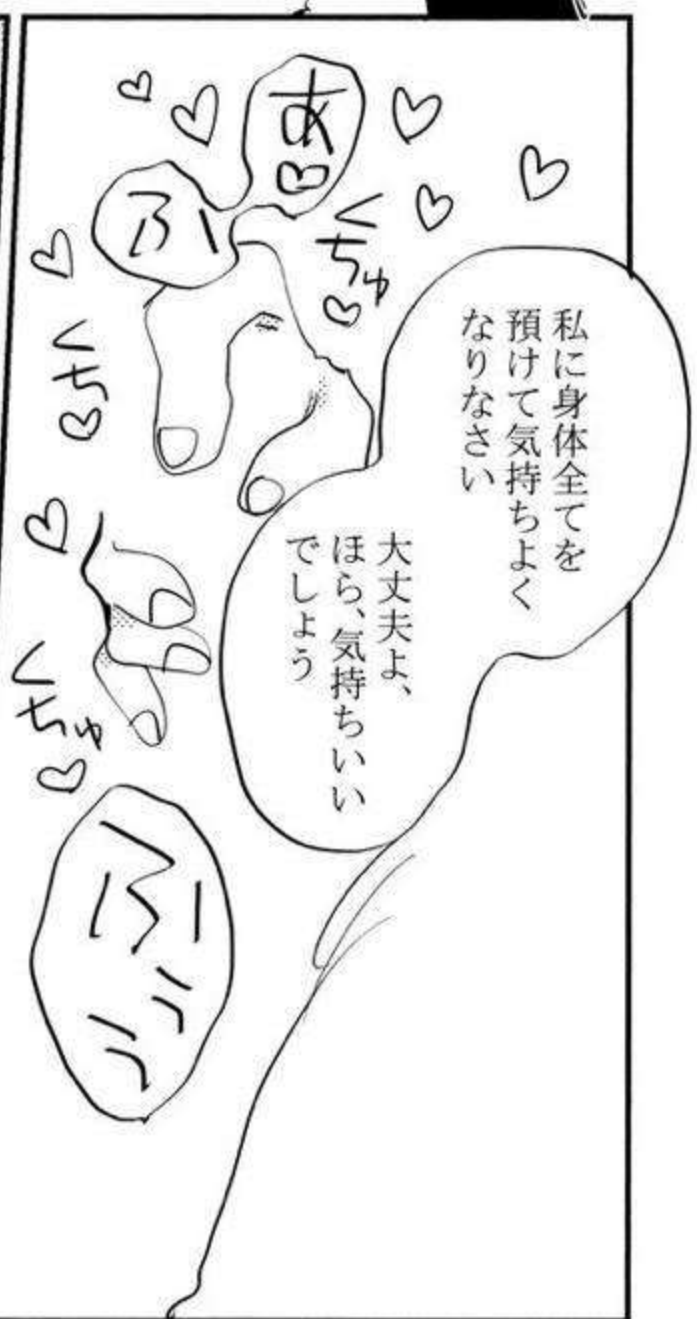 あ♡
ふ
くちゅ♡
私に身体全てを
預けて気持ちよく
なりなさい
大丈夫よ、
ほら、気持ちいい
でしょう
くち♡
くちゅ♡
ふぅぅ